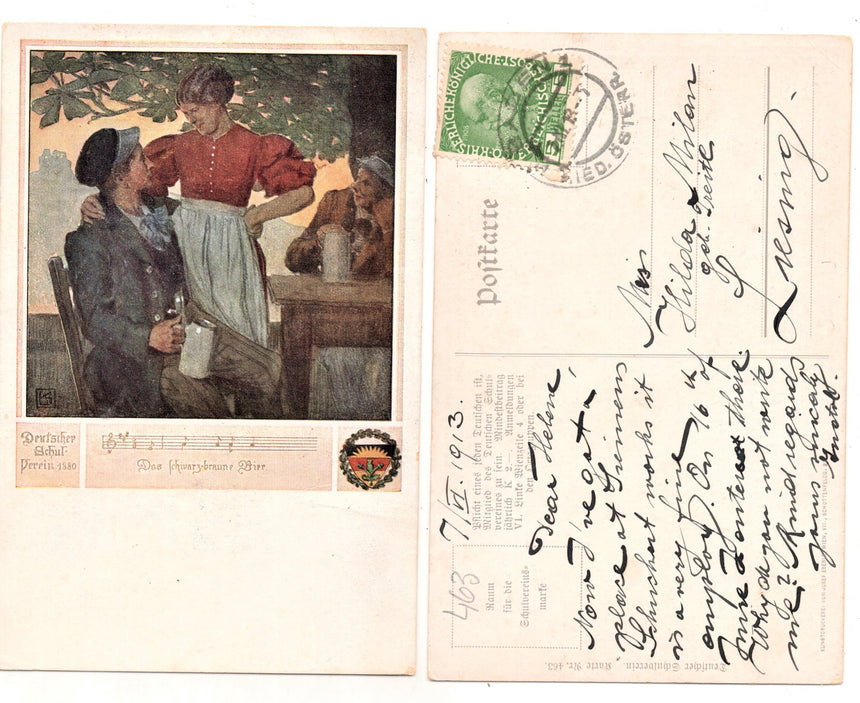 Deutscher
Schul-
Verein 1880
Das schwarz-braune Bier.
KAISERLICHE KÖNIGLICHE
ÖSTERREICHISCHE
5
NIED. ÖSTERR.
Postkarte
Miss
Hilda Milan
geb.
Liesing.
Pflicht eines jeden Deutschen ist,
Mitglied des Deutschen Schul-
vereines zu sein. Mindestbeitrag
jährlich K 2.—. Anmeldungen
VI. Linke Wienzeile 4 oder bei
den
463
Raum
für die
Schulvereins-
marke
7/VI. 1913.
Dear Helene,
Now I've got a
place at Siemens
Schuckert works it
is a very fine
employ. On 16th of
June I enter there.
Why do you not write
me? Kind regards
yours
Deutscher Schulverein. Karte Nr. 463.